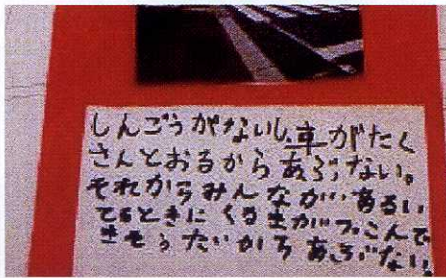 しんごうがないし、車がたく
さんとおるからあぶない。
それからみんながあるい
てるときにくるまがつこんで
きそうだからあぶない